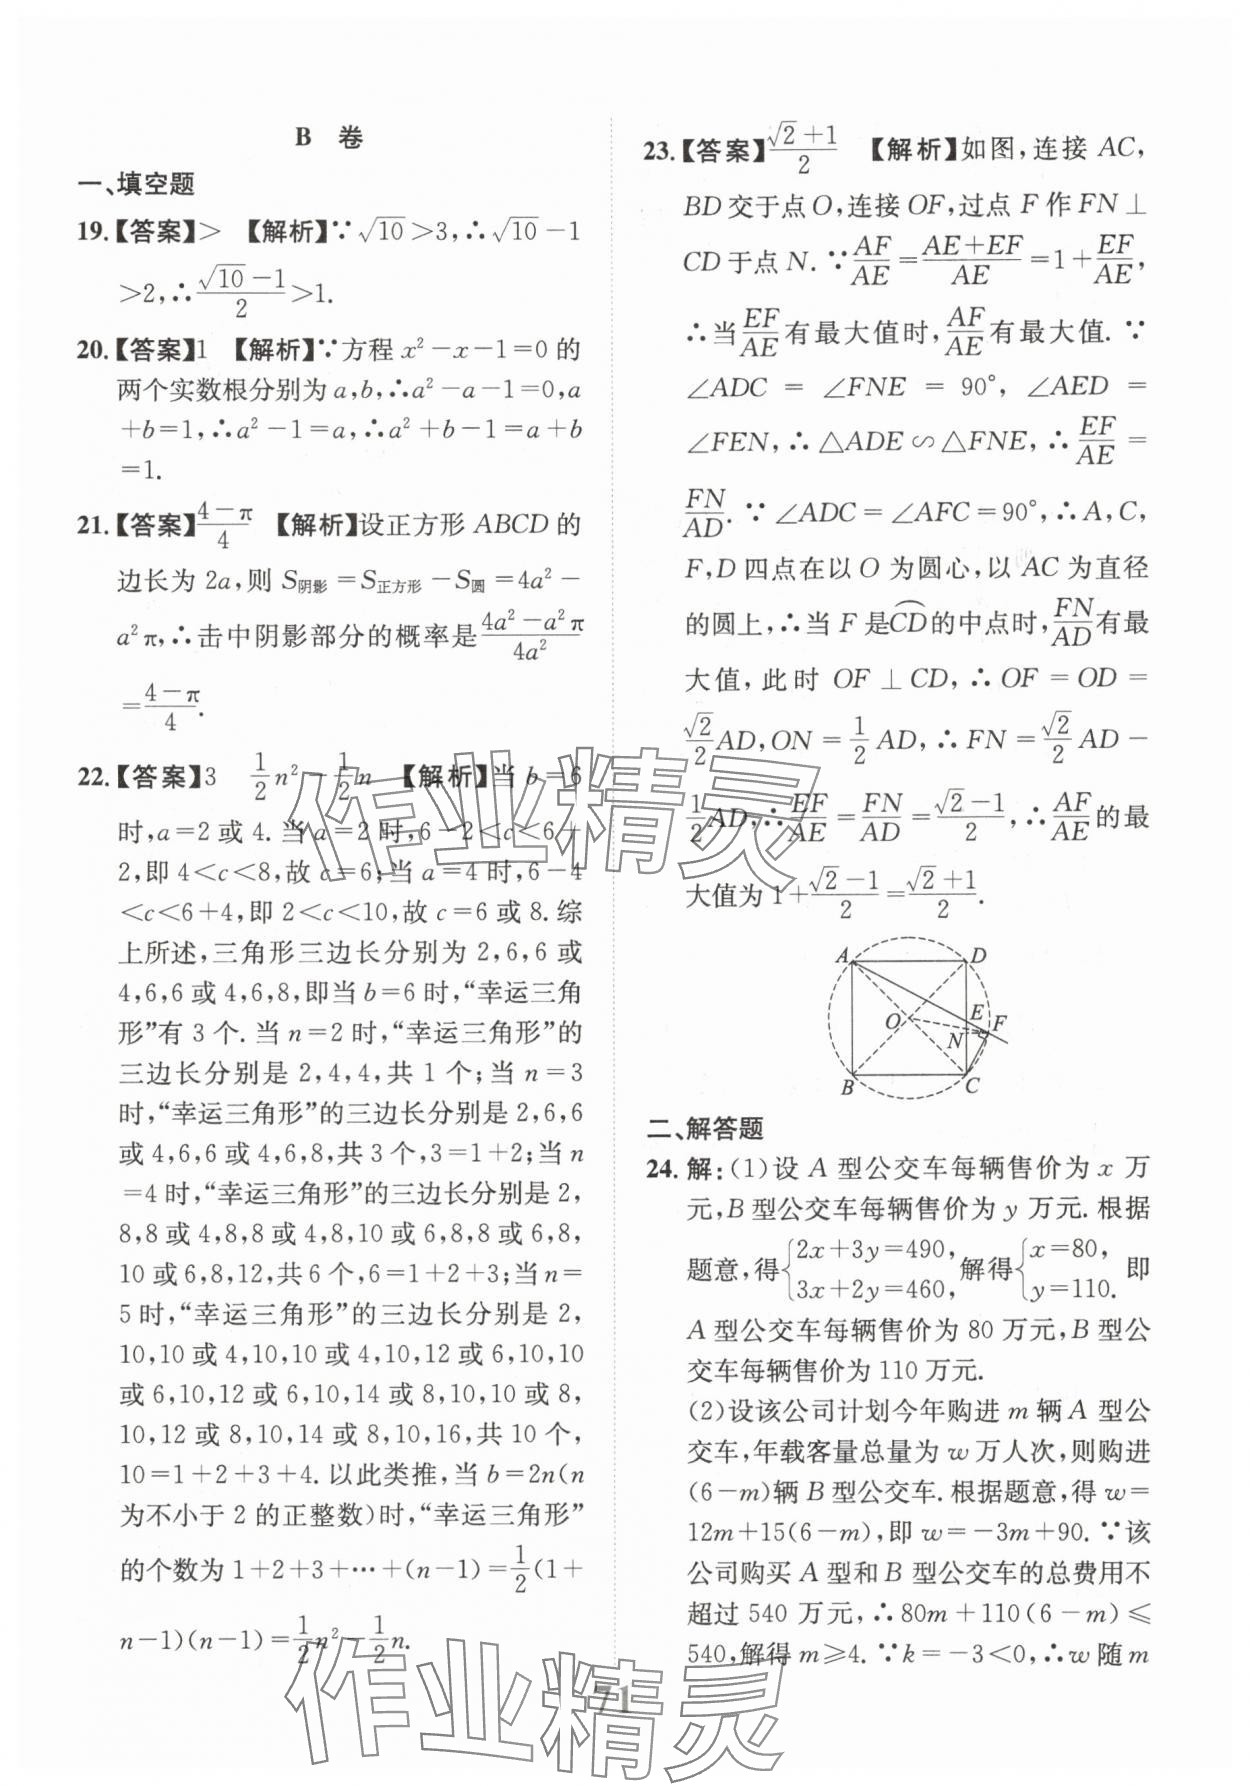 B 卷
一、填空题
19.【答案】> 【解析】∵√10>3,∴√10-1
>2,∴(√10-1)/2>1.
20.【答案】1 【解析】∵方程 x²-x-1=0 的
两个实数根分别为 a,b,∴a²-a-1=0,a
+b=1,∴a²-1=a,∴a²+b-1=a+b
=1.
21.【答案】(4-π)/4 【解析】设正方形 ABCD 的
边长为 2a,则 S阴影=S正方形-S圆=4a²-
a²π,∴击中阴影部分的概率是(4a²-a²π)/4a²
=(4-π)/4.
22.【答案】3 1/2n²-1/2n 【解析】当 b=6
时,a=2 或 4.当 a=2 时,6-2<c<6+
2,即 4<c<8,故 c=6;当 a=4 时,6-4
<c<6+4,即 2<c<10,故 c=6 或 8.综
上所述,三角形三边长分别为 2,6,6 或
4,6,6 或 4,6,8,即当 b=6 时,“幸运三角
形”有 3 个.当 n=2 时,“幸运三角形”的
三边长分别是 2,4,4,共 1 个;当 n=3
时,“幸运三角形”的三边长分别是 2,6,6
或 4,6,6 或 4,6,8,共 3 个,3=1+2;当 n
=4 时,“幸运三角形”的三边长分别是 2,
8,8 或 4,8,8 或 4,8,10 或 6,8,8 或 6,8,
10 或 6,8,12,共 6 个,6=1+2+3;当 n=
5 时,“幸运三角形”的三边长分别是 2,
10,10 或 4,10,10 或 4,10,12 或 6,10,10
或 6,10,12 或 6,10,14 或 8,10,10 或 8,
10,12 或 8,10,14 或 8,10,16,共 10 个,
10=1+2+3+4.以此类推,当 b=2n(n
为不小于 2 的正整数)时,“幸运三角形”
的个数为 1+2+3+…+(n-1)=1/2(1+
n-1)(n-1)=1/2n²-1/2n.
23.【答案】(√2+1)/2 【解析】如图,连接 AC,
BD 交于点 O,连接 OF,过点 F 作 FN⊥
CD 于点 N.∵AF/AE=(AE+EF)/AE=1+EF/AE,
∴当EF/AE有最大值时,AF/AE有最大值.∵
∠ADC=∠FNE=90°,∠AED=
∠FEN,∴△ADE∽△FNE,∴EF/AE=
FN/AD.∵∠ADC=∠AFC=90°,∴A,C,
F,D 四点在以 O 为圆心,以 AC 为直径
的圆上,∴当 F 是⌒CD的中点时,FN/AD有最
大值,此时 OF⊥CD,∴OF=OD=
√2/2AD,ON=1/2AD,∴FN=√2/2AD-
1/2AD,∴EF/AE=FN/AD=(√2-1)/2,∴AF/AE的最
大值为 1+(√2-1)/2=(√2+1)/2.
A D
O E F
N
B C
二、解答题
24. 解:(1)设 A 型公交车每辆售价为 x 万
元,B 型公交车每辆售价为 y 万元.根据
题意,得{2x+3y=490, 3x+2y=460,解得{x=80, y=110.即
A 型公交车每辆售价为 80 万元,B 型公
交车每辆售价为 110 万元.
(2)设该公司计划今年购进 m 辆 A 型公
交车,年载客量总量为 w 万人次,则购进
(6-m)辆 B 型公交车.根据题意,得 w=
12m+15(6-m),即 w=-3m+90.∵该
公司购买 A 型和 B 型公交车的总费用不
超过 540 万元,∴80m+110(6-m)≤
540,解得 m≥4.∵k=-3<0,∴w 随 m
71
作业精灵
作业精灵